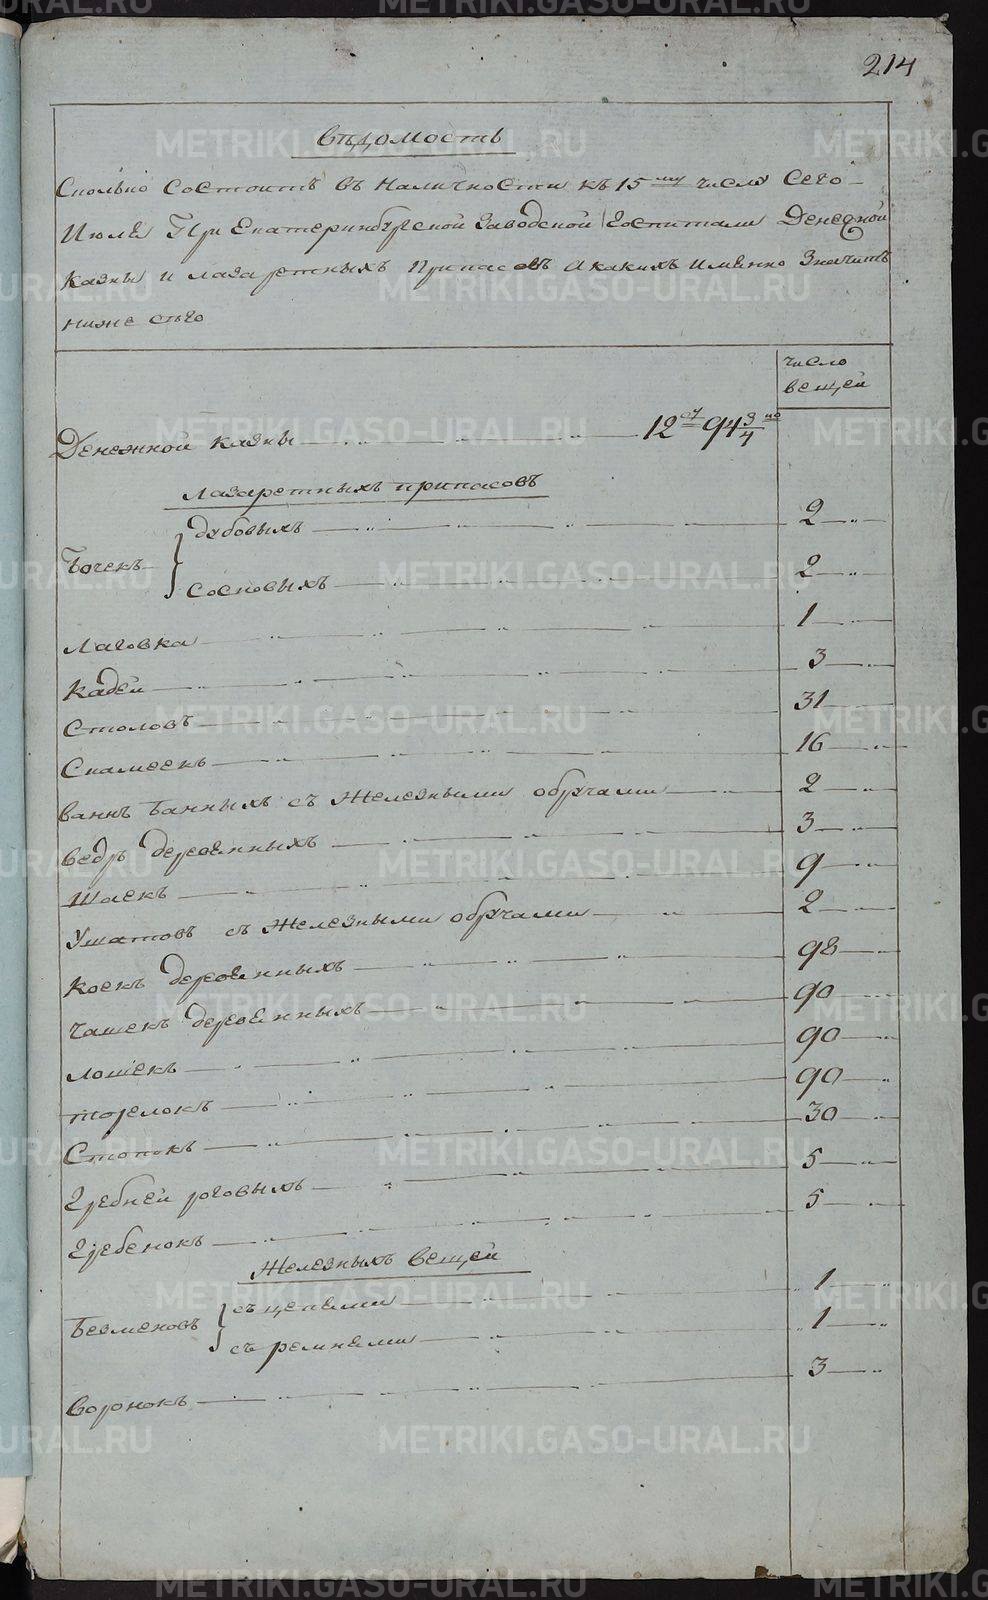 214
Вѣдомость
Сколько состоитъ въ наличности къ 15му числу сего
Июля При Екатеринбургской Заводской Госпитали Денежной
казны и лазаретныхъ Припасовъ а какихъ имянно значитъ
ниже сего
число
вещей
Денежной казны 12 94 3/4
Лазаретныхъ припасовъ
Бочекъ
дубовыхъ 2
Сосновыхъ 2
Лаговка 1
Кадей 3
Столовъ 31
Скамеекъ 16
Ваннъ банныхъ съ железными обручами 2
Ведръ деревянныхъ 3
Шаекъ 9
Ушатовъ съ железными обручами 2
Коекъ деревянныхъ 98
Чашекъ деревянныхъ 90
Ложекъ 90
Торелокъ 90
Стопокъ 30
Гребней роговыхъ 5
Гребенокъ 5
Железныхъ вещей
Безменовъ
съ цепями 1
съ ремнями 1
Воронокъ 3
METRIKI.GASO-URAL.RU